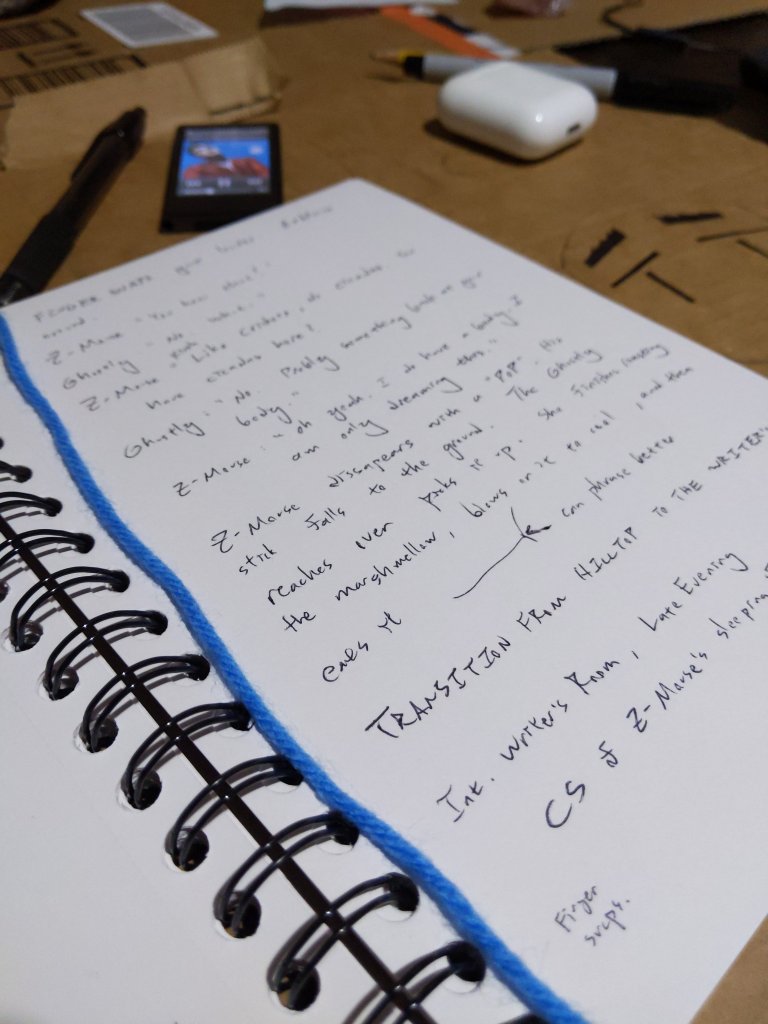 FINGER SNAPS
around.
Z-Mouse "You hear that?"
Ghostly "No. What."
Z-Mouse "Like crickets, or cicadas. Do
have cicadas here?
Ghostly: "No. Probly something back at your
body."
Z-Mouse: "Oh yeah. I do have a body. I
am only dreaming this."
Z-Mouse dissapears with a "POP". His
stick falls to the ground. The Ghostly
reaches over picks it up. She finishes roasting
the marshmellow, blows on it to cool, and then
eats it
can phrase better
TRANSITION FROM HILLTOP TO THE WRITER'S
Int. Writer's Room, Late Evening
CS of Z-Mouse's sleeping
Finger
snaps.